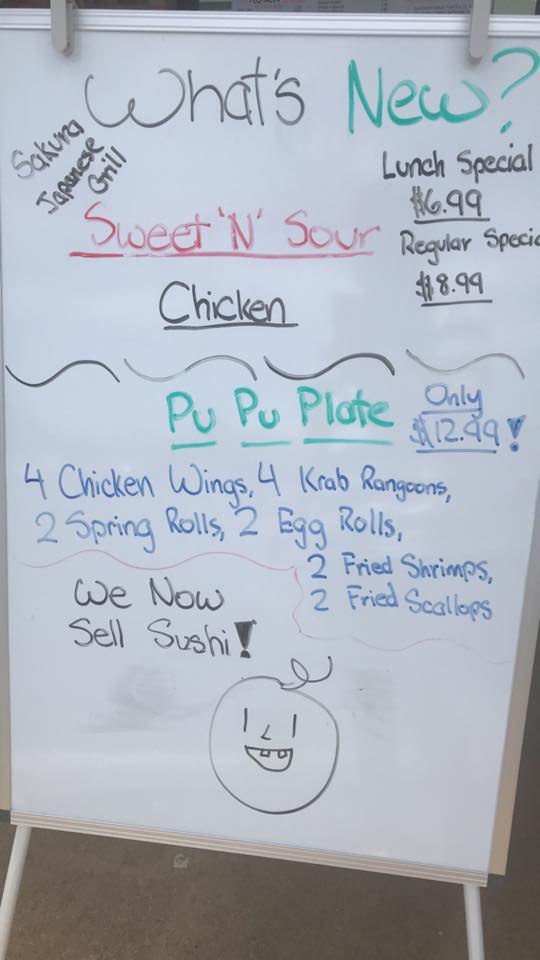 What's New?
Sakura
Japanese
Grill
Lunch Special
$6.99
Regular Specia
$8.99
Sweet 'N' Sour
Chicken
Pu Pu Plate
Only
$12.99!
4 Chicken Wings, 4 Krab Rangoons,
2 Spring Rolls, 2 Egg Rolls,
2 Fried Shrimps,
2 Fried Scallops
We Now
Sell Sushi!